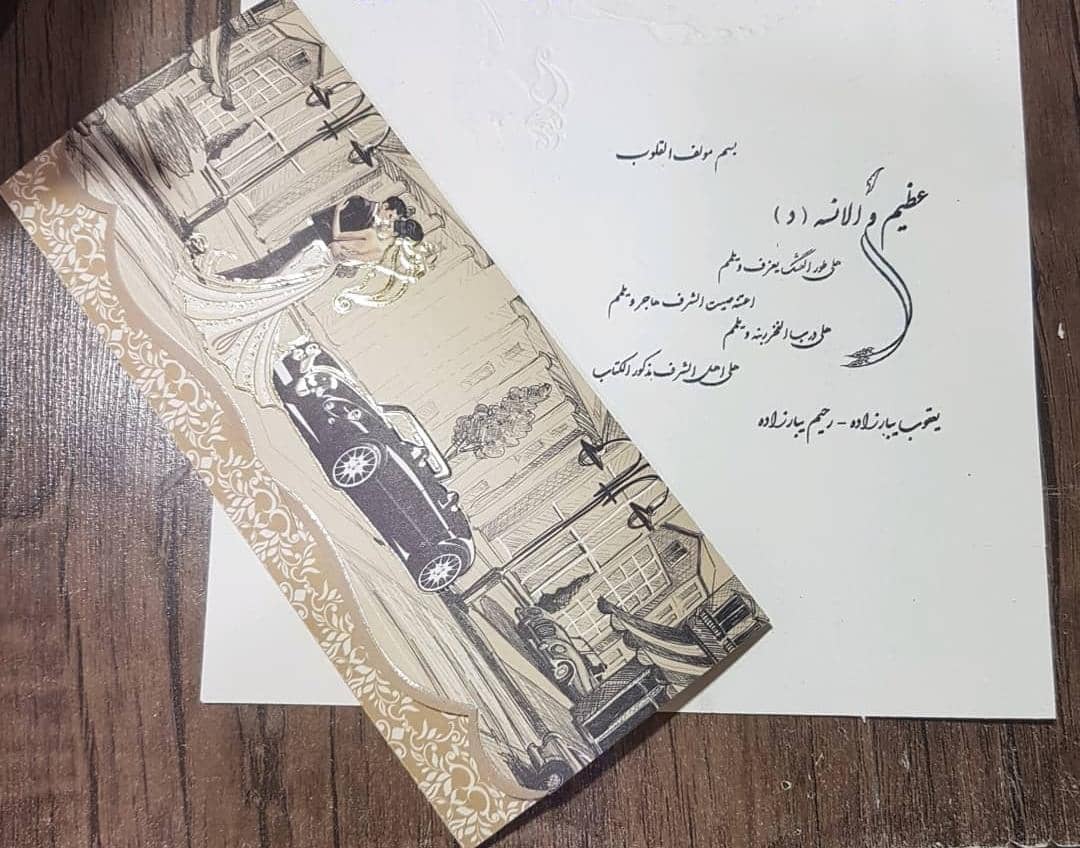 بسم مولف القلوب
عظیم و الانسه (د)
هلی عور الهشک یعزف ویلمم
اعتنه صیت الشرف هاجر ویلمم
هلی درب الفخر بنه ویلمم
هلی اهل الشرف مذکور الکتاب
یعقوب یبارزاده - رحیم یبارزاده